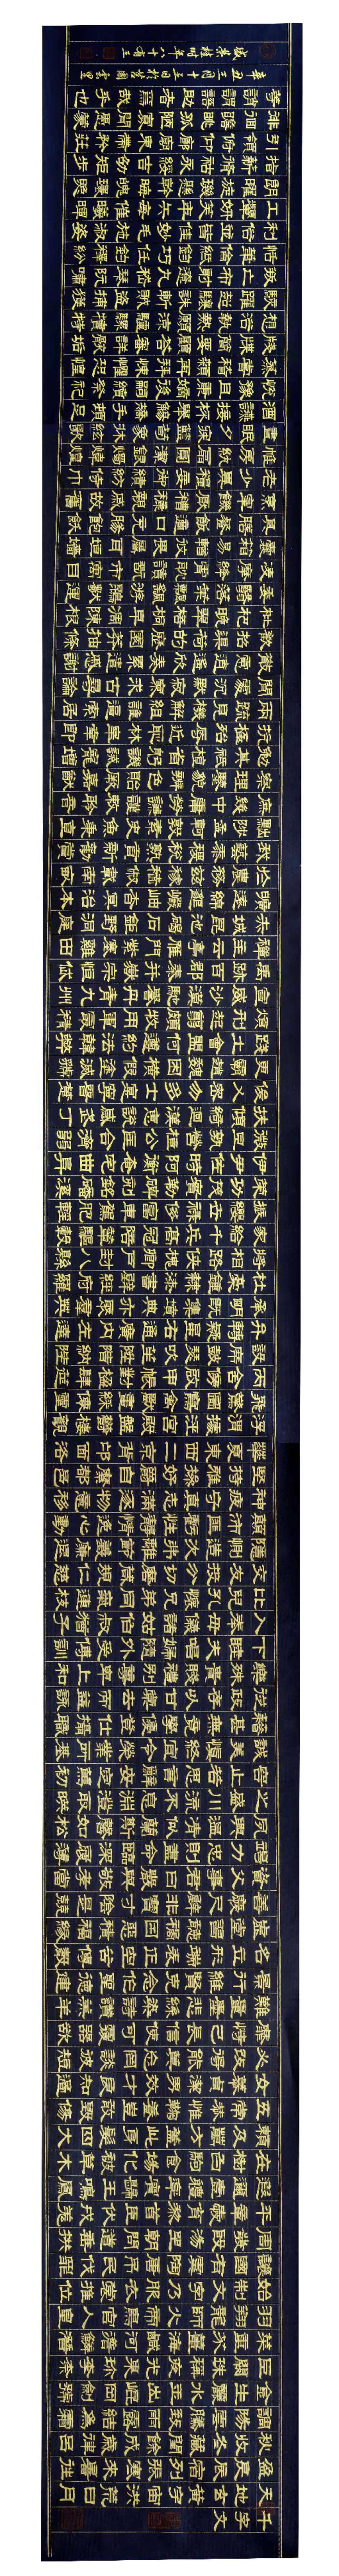 千字文
天地玄黃宇宙洪荒日月
盈昃辰宿列張寒來暑往
秋收冬藏閏餘成歲律呂
調陽雲騰致雨露結爲霜
金生麗水玉出崑岡劍號
巨闕珠稱夜光果珍李柰
菜重芥薑海鹹河淡鱗潛
羽翔龍師火帝鳥官人皇
始制文字乃服衣裳推位
讓國有虞陶唐弔民伐罪
周發殷湯坐朝問道垂拱
平章愛育黎首臣伏戎羌
遐邇壹體率賓歸王鳴鳳
在樹白駒食場化被草木
賴及萬方蓋此身髮四大
五常恭惟鞠養豈敢毀傷
女慕貞烈男效才良知過
必改得能莫忘罔談彼短
靡恃己長信使可覆器欲
難量墨悲絲染詩讚羔羊
景行維賢克念作聖德建
名立形端表正空谷傳聲
虛堂習聽禍因惡積福緣
善慶尺璧非寶寸陰是競
資父事君曰嚴與敬孝當
竭力忠則盡命臨深履薄
夙興溫凊似蘭斯馨如松
之盛川流不息淵澄取映
容止若思言辭安定篤初
誠美愼終宜令榮業所基
籍甚無竟學優登仕攝職
從政存以甘棠去而益詠
樂殊貴賤禮別尊卑上和
下睦夫唱婦隨外受傅訓
入奉母儀諸姑伯叔猶子
比兒孔懷兄弟同氣連枝
交友投分切磨箴規仁慈
隱惻造次弗離節義廉退
顚沛匪虧性靜情逸心動
神疲守眞志滿逐物意移
堅持雅操好爵自縻都邑
華夏東西二京背邙面洛
浮渭據涇宮殿盤鬱樓觀
飛驚圖寫禽獸畫彩仙靈
丙舍傍啓甲帳對楹肆筵
設席鼓瑟吹笙陞階納陛
弁轉疑星右通廣內左達
承明旣集墳典亦聚群英
杜稾鍾隷漆書壁經府羅
將相路俠槐卿戶封八縣
家給千兵高冠陪輦驅轂
振纓世祿侈富車駕肥輕
策功茂實勒碑刻銘磻溪
伊尹佐時阿衡奄宅曲阜
微旦孰營桓公匡合濟弱
扶傾綺回漢惠說感武丁
俊乂密勿多士寔寧晉楚
更霸趙魏困橫假途滅虢
踐土會盟何遵約法韓弊
煩刑起翦頗牧用軍最精
宣威沙漠馳譽丹靑九州
禹跡百郡秦幷嶽宗恒岱
禪主云亭雁門紫塞雞田
赤城昆池碣石鉅野洞庭
曠遠綿邈巖岫杳冥治本
於農務玆稼穡俶載南畝
我藝黍稷稅熟貢新勸賞
黜陟孟軻敦素史魚秉直
庶幾中庸勞謙謹勅聆音
察理鑑貌辨色貽厥嘉猷
勉其祗植省躬譏誡寵增
抗極殆辱近恥林皐幸卽
兩疏見機解組誰逼索居
閑處沈默寂寥求古尋論
散慮逍遙欣奏累遣慼謝
歡招渠荷的歷園莽抽條
枇杷晩翠梧桐早凋陳根
委翳落葉飄颻遊鵾獨運
凌摩絳霄耽讀翫市寓目
囊箱易輶攸畏屬耳垣牆
具膳飡飯適口充腸飽飫
烹宰飢厭糟糠親戚故舊
老少異糧妾御績紡侍巾
帷房紈扇圓潔銀燭煒煌
晝眠夕寐藍筍象床絃歌
酒讌接杯擧觴矯手頓足
悅豫且康嫡後嗣續祭祀
蒸嘗稽顙再拜悚懼恐惶
牋牒簡要顧答審詳骸垢
想浴執熱願涼驢騾犢特
駭躍超驤誅斬賊盜捕獲
叛亡布射遼丸嵇琴阮嘯
恬筆倫紙鈞巧任釣釋紛
利俗竝皆佳妙毛施淑姿
工顰姸笑年矢每催曦暉
朗曜璇璣懸斡晦魄環照
指薪修祐永綏吉劭矩步
引領俯仰廊廟束帶矜莊
徘徊瞻眺孤陋寡聞愚蒙
等誚謂語助者焉哉乎也
辛丑三月十五日於首爾雲里